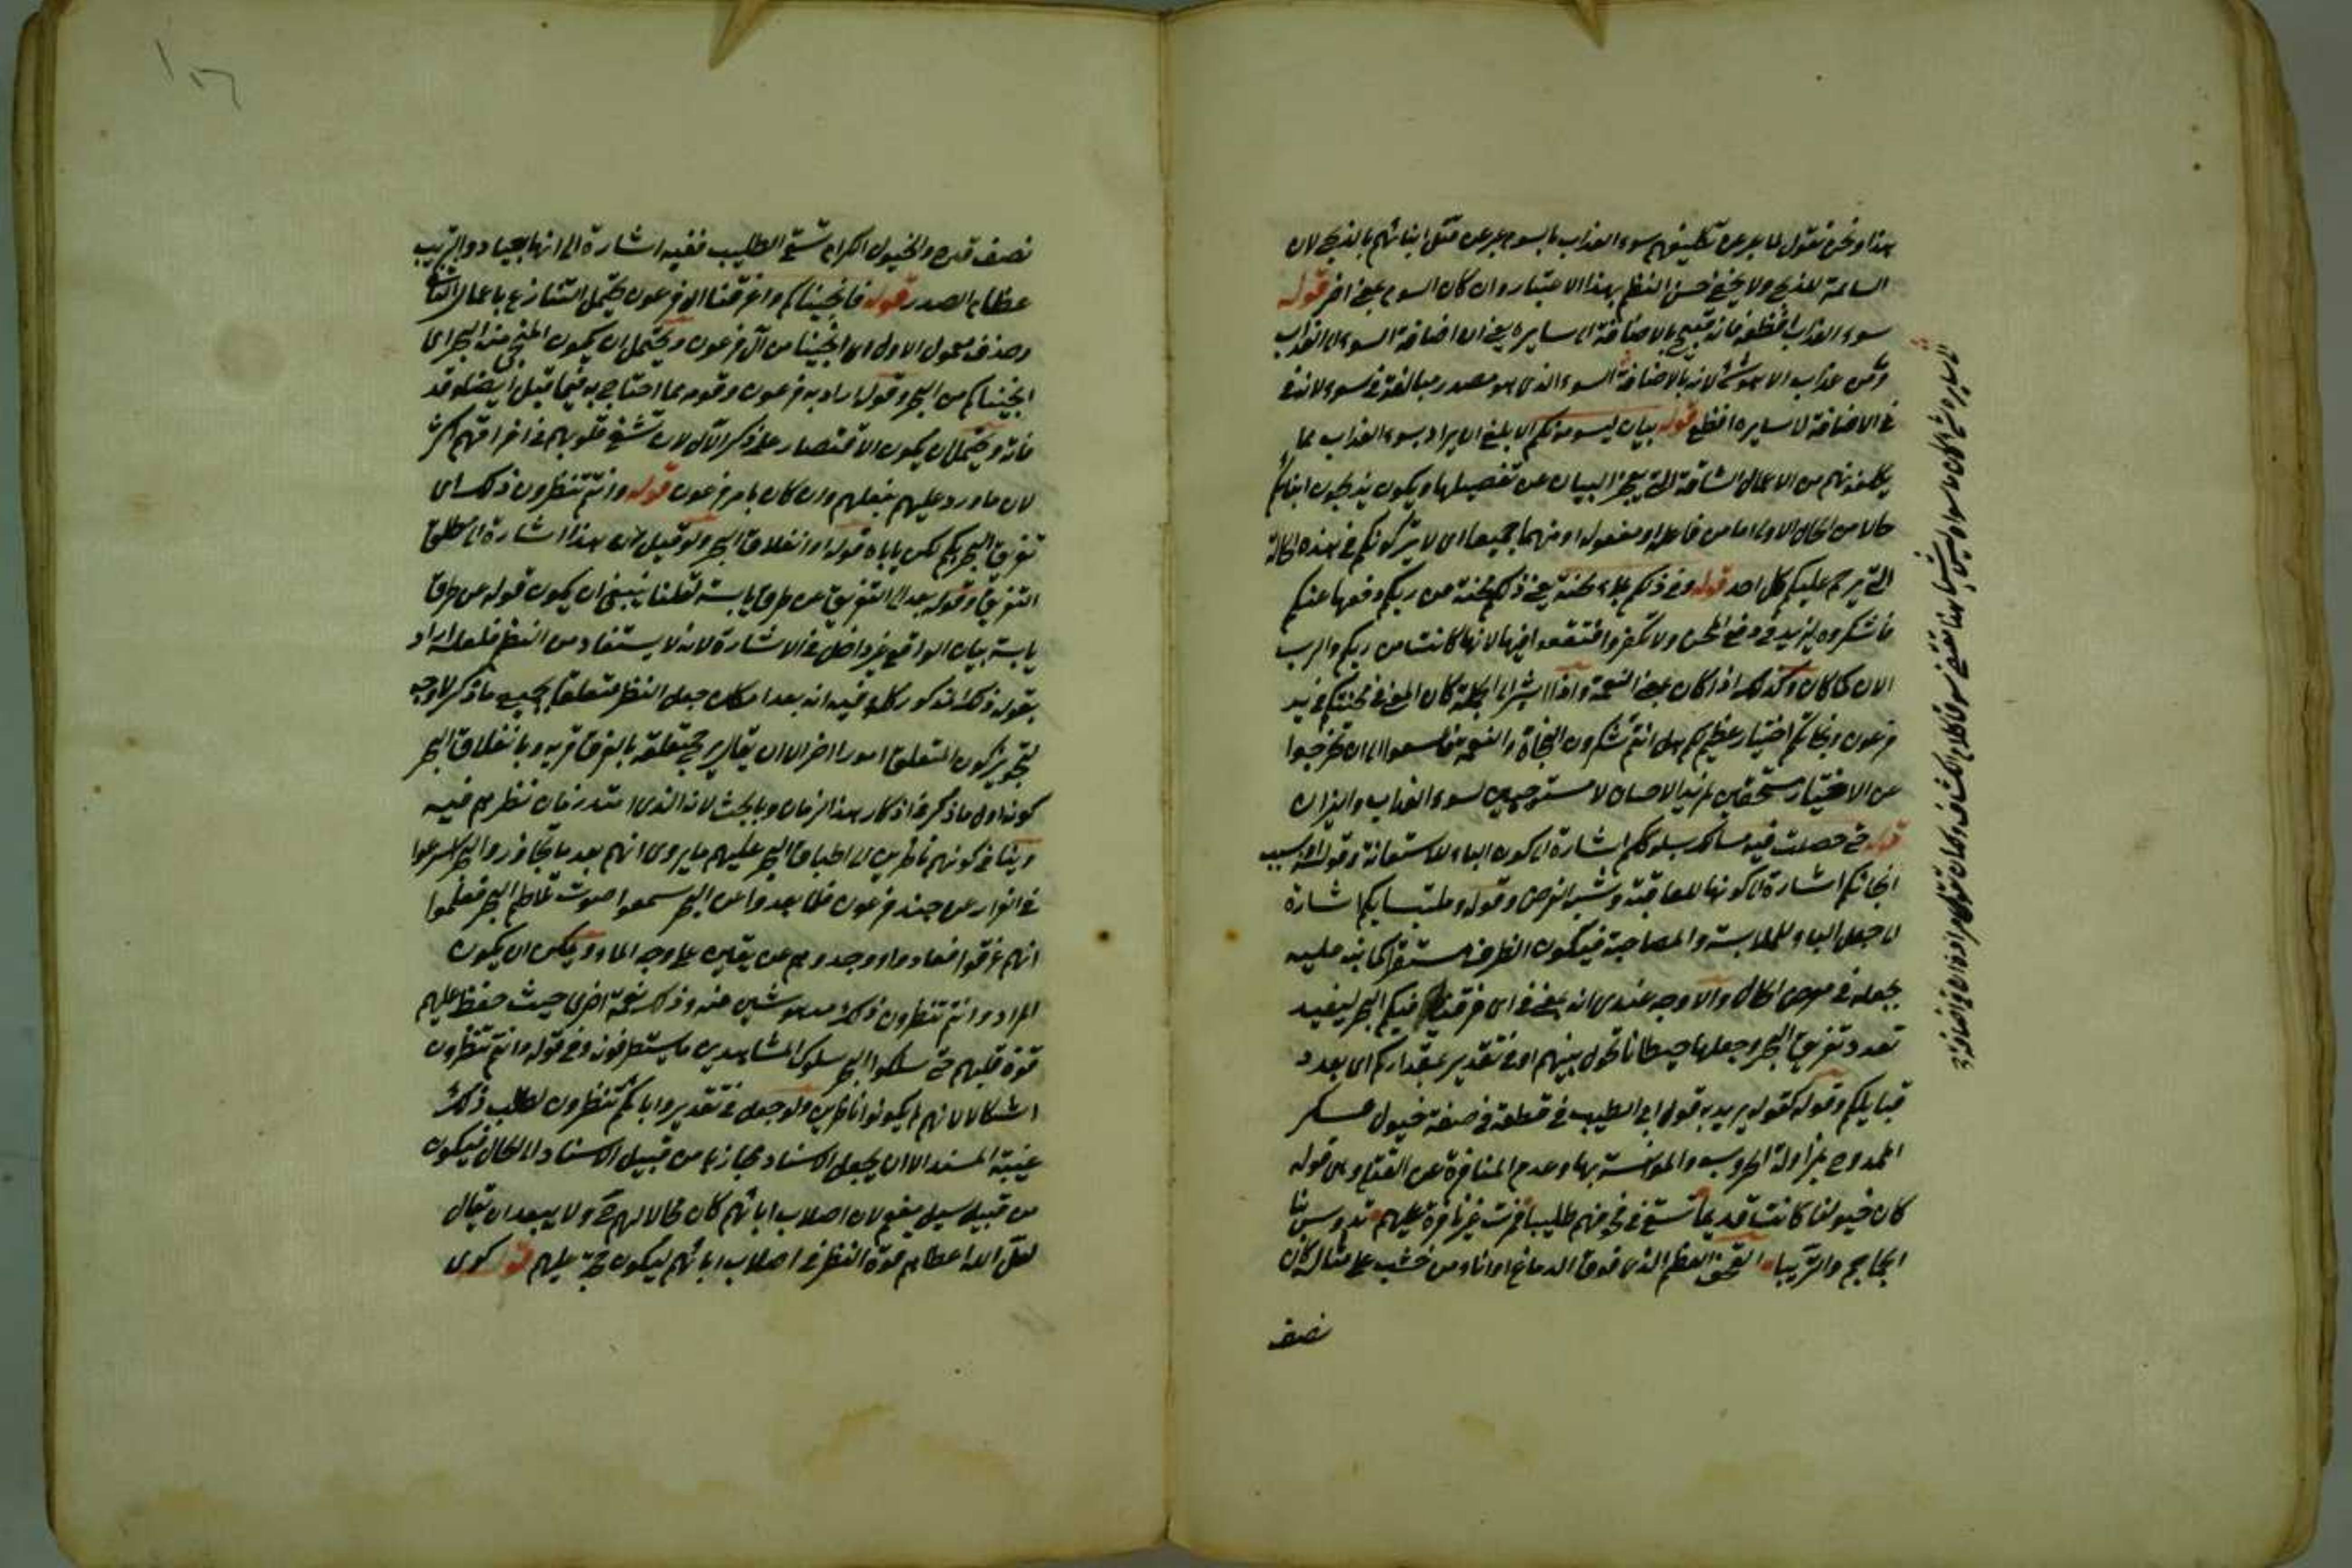 هذا ونحن نقول لما عبر عن تكليفهم سوء العذاب بالسوم عبر عن قتل ابنائهم بالذبح لان
السائمة للذبح ولا يخفى حسن النظم بهذا الاعتبار وان كان السوم بمعنى اخر قوله
سوء العذاب افظعه فانه قبيح بالاضافة الى سايره يعنى ان اضافة السوء الى العذاب
من عذاب الا وهو سيئ لانه بالاضافة السوء الذى هو مصدر مبالغة فى سوء لانه
فى الاضافة لا سايره افظع قوله بيان ليسومونكم الابلغ ان يراد بسوء العذاب ما
يكلفونهم من الاعمال الشاقة التى يعجز البيان عن تفصيلها ويكون يذبحون ابنائكم
حالا من الحال الاولى اما من فاعله او مفعوله او منهما جميعا اى لا يتركونكم فى هذه الحالة
التى يرحم عليكم كل احد قوله وفى ذلكم بلاء محنة يعنى ذلكم محنة من ربكم دفعها عنكم
فاشكروه ليزيد فى دفع المحن ولا تكفروا فتقعوا فيها لانها كانت من ربكم والرب
الان كما كان وكذلك اذا كان بمعنى النعمة واذا اشير الى الجملة كان المعنى فى محنتكم فى يد
فرعون ونجاتكم اختبار عظيم لكم هل انتم تشكرون النجاة والنعمة فاسعوا الى ان تخرجوا
عن الاختبار مستحقين لمزيد الاحسان لا مستوجبين لسوء العذاب والنيران
قوله حتى حصلت فيه مسالك بسلوككم اشارة الى كون الباء للاستعانة وقوله او بسبب
انجائكم اشارة الى كونها للمعاقبة وشبه الغرض وقوله وملتبسا بكم اشارة
الى جعل الباء للملابسة والمصاحبة فيكون الظرف مستقرا كما بنه عليه
بجعله فى معرض الحال والاوجه عندى انه بمعنى فى اى فرقنا فيكم البحر ليفيد
تعدد تفريق البحر وجعلها حيطانا تحول بينهم او فى تقدير بمقداركم اى بعدد
قبايلكم وقوله كقوله يريد به قول ابى الطيب فى قطعة فى صفة خيول عسكر
الممدوح بمزاولة الحروب والموانسة بها وعدم المنافرة عن القتلى وهى قوله
كان خيولنا كانت قديما تسقى فى قحوفهم حليبا فمرت غير نافرة عليهم تدوس بنا
الجماجم والتريبا القحف العظم الذى فوق الدماغ او اناء من خشب على مثاله كان
نصف
نصف قدح والخيول الكرام تسقى الحليب ففيه اشارة الى انها بجياد والتريب
عظام الصدر قوله فانجيناكم واغرقنا ال فرعون يحتمل التنازع باعمال الثانى
وحذف معمول الاول اى انجينا من آل فرعون ويحتمل ان يكون المنجى منه البحر اى
انجيناكم من البحر وقوله اراد به فرعون وقومه مما احتاج به فيما قبل ايضا وقد
فاته ويحتمل ان يكون الاقتصار على ذكر الآل لان تشفى قلوبهم فى اغراقهم اكثر
لان ما ورد عليهم بفعلهم وان كان بامر فرعون قوله وانتم تنظرون ذلك اى
تفريق البحر بكم لكن ياباه قوله او انفلاق البحر ولو قيل ان هذا اشارة الى مطلق
التفريق وقوله بعد الى التفريق عن طرق يابسة لقلنا ينبغى ان يكون قوله عن طرق
يابسة بيان الواقع غير داخل فى الاشارة لانه لا يستفاد من النظم فلعله اراد
بقوله ذلك المذكور كله وفيه انه بعد امكان جعل النظر متعلقا بجميع ما ذكر لا وجه
لتجويز كون المتعلق امورا اخر الا ان يقال يرجح تعلقه بالغرق قربه وبانفلاق البحر
كونه اول ما ذكر فى اذكار هذا الزمان وبالجثث لانه الذى امتد زمان نظرهم فيه
وينافى كونهم ناظرين الى اطباق البحر عليهم ما يروى انهم بعد ما تجاوزوا البحر اسرعوا
فى الفرار عن جند فرعون فلما بعدوا عن البحر سمعوا صوت تلاطم البحر فعلموا
انهم غرقوا فعادوا ووجدوهم عن يقين على وجه الماء ويمكن ان يكون
المراد وانتم تنظرون ذلك غير مدهوشين عنه وذلك نعمة اخرى حيث حفظ عليهم
قوة قلبهم حتى سلكوا البحر سلوك المشاهدين ما يستطرفونه وفى قوله وانتم تنظرون
اشكال لانهم لم يكونوا ناظرين ولو جعل فى تقدير واباءكم تنظرون لطلب ذلك
غيبة المسند الا ان يجعل الاسناد مجازيا من قبيل الاسناد الى الحال فيكون
من قبيل سيل مفعم لان اصلاب ابائهم كان محالا لهم ولا يبعد ان يقال
لعل الله اعطاهم قوة النظر فى اصلاب ابائهم ليكون حجة عليهم قوله كوى